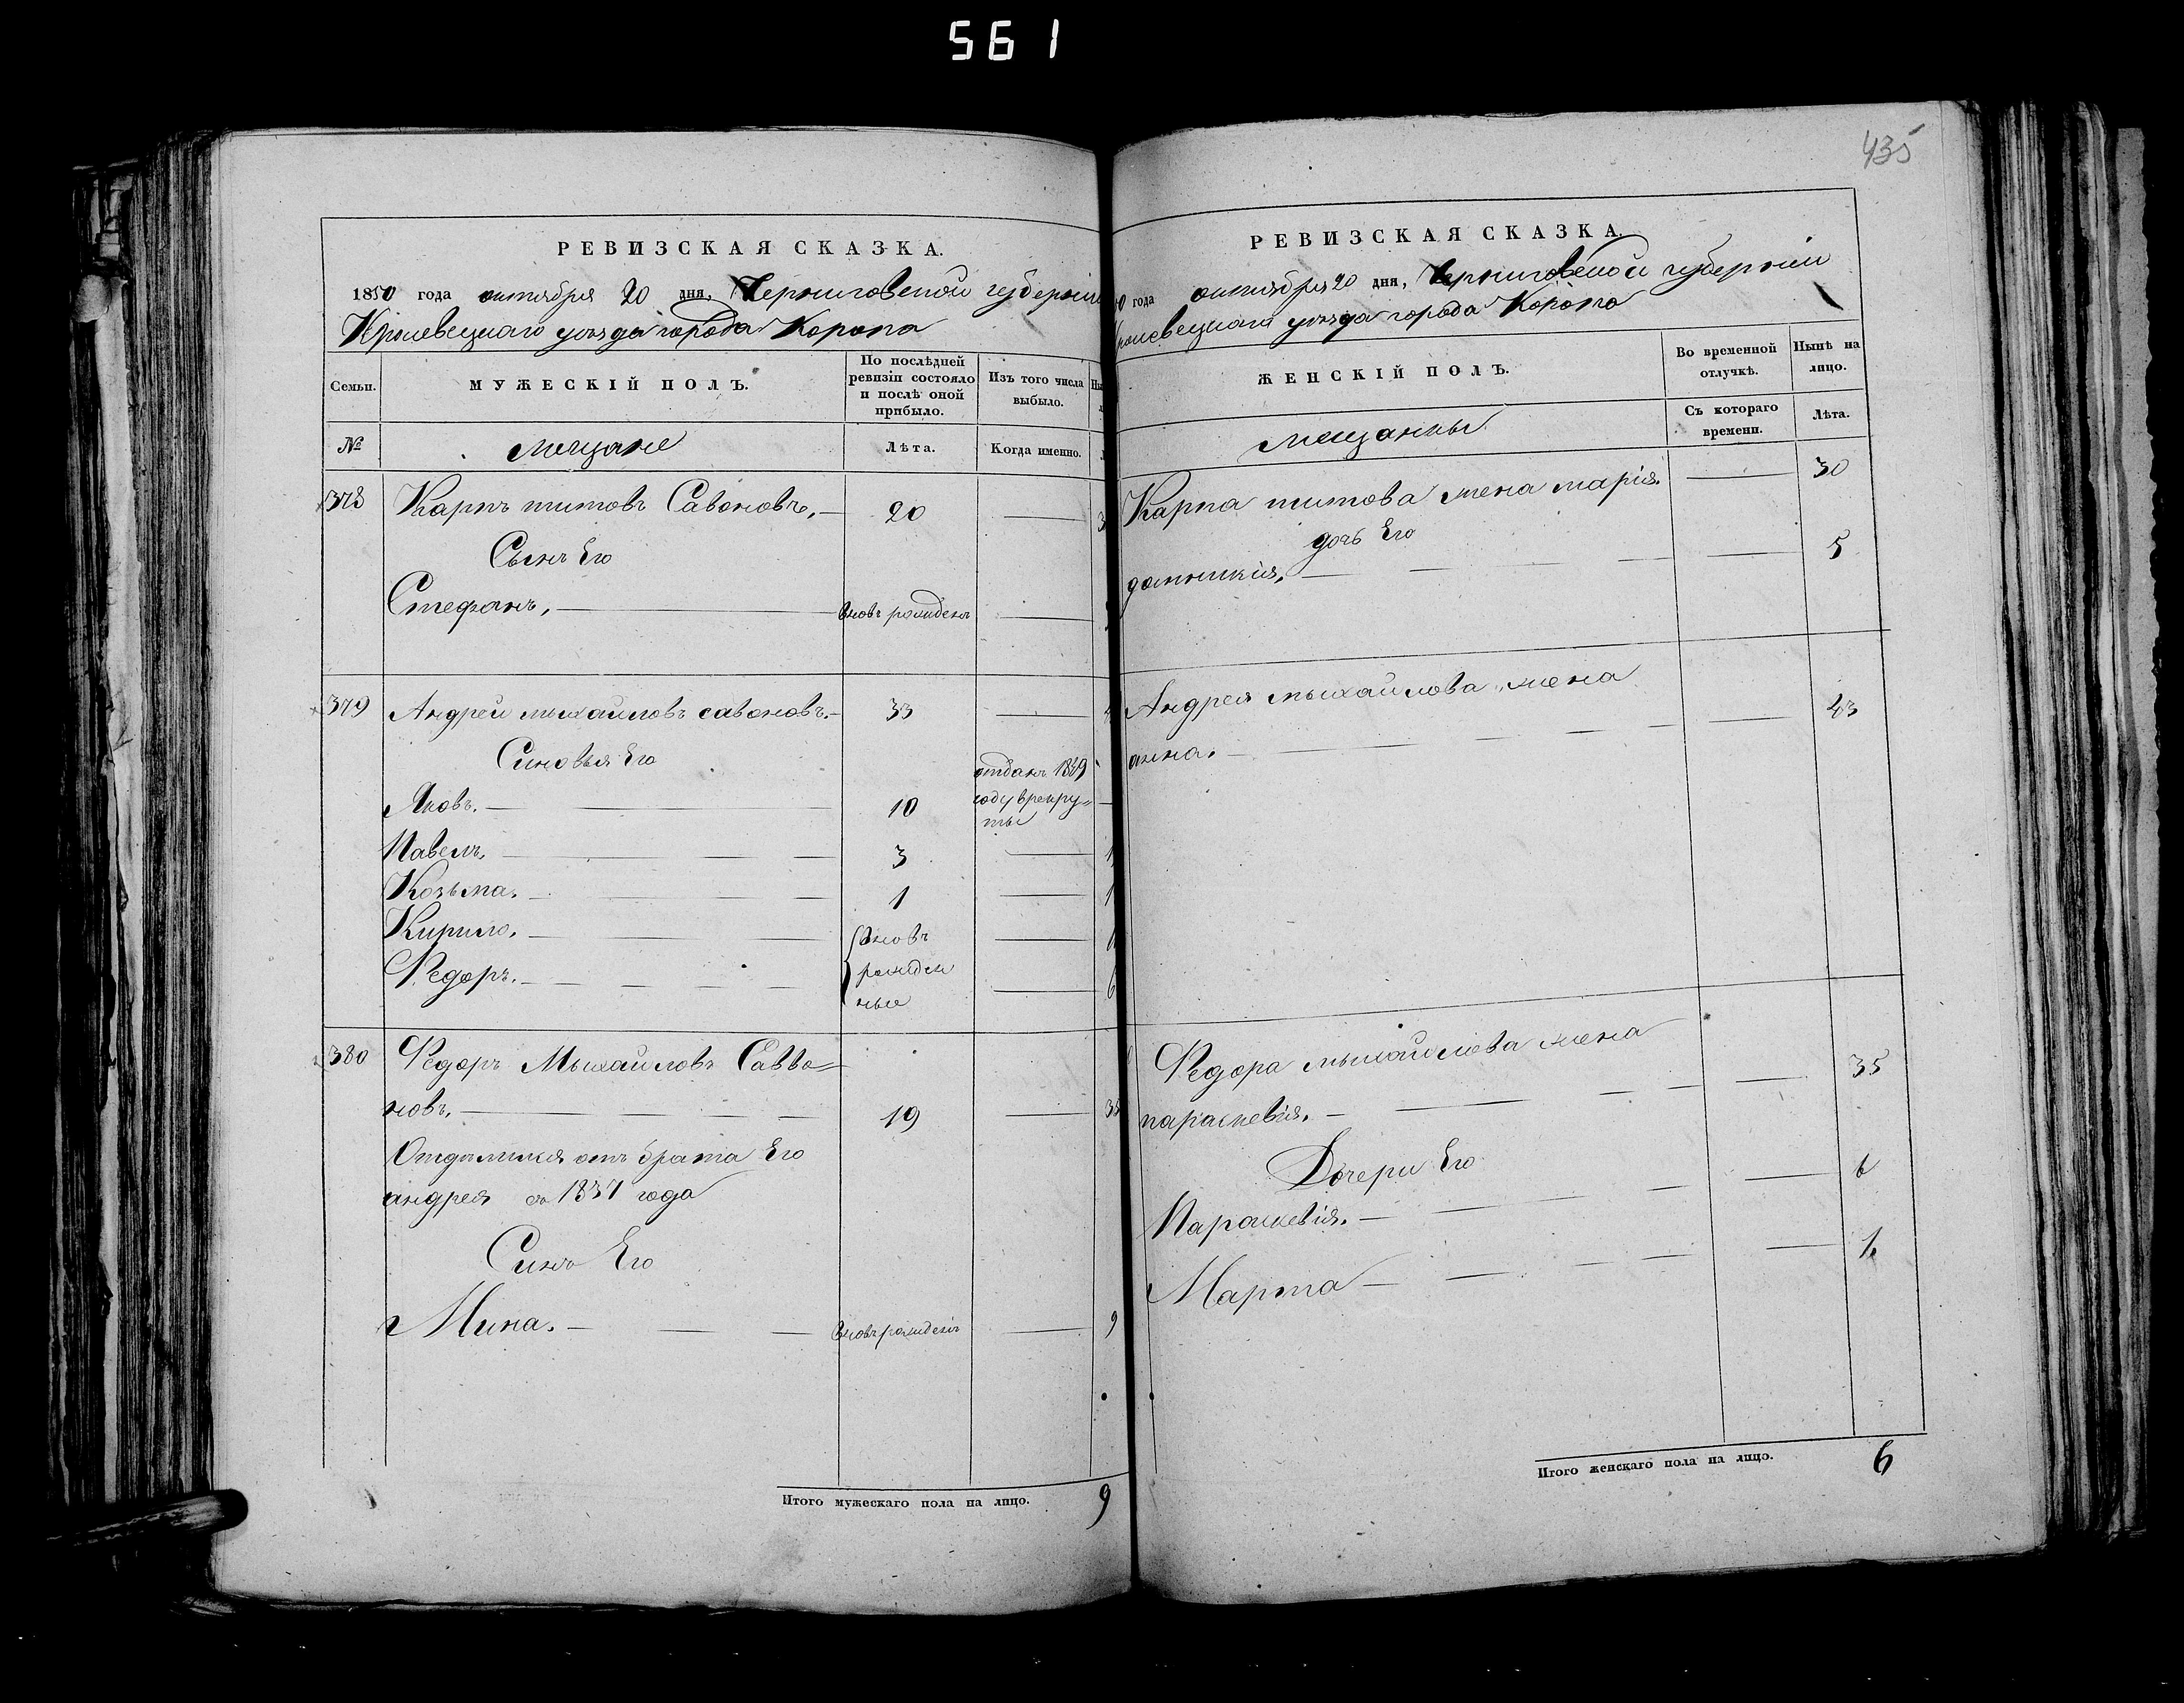 561
435
РЕВИЗСКАЯ СКАЗКА.
1850 года октября 20 дня, Черниговской губернии
Кролевецкаго уезда города Коропа
Семьи.
МУЖЕСКІЙ ПОЛЪ.
По послѣдней ревизіи состояло и послѣ оной прибыло.
Изъ того числа выбыло.
№
мещане
Лѣта.
Когда именно.
378 Карпъ титовъ Савоновъ. — 20 —
Сынъ Его
Стефанъ. — вновь рожденъ —
379 Андрей мыхайловъ савоновъ. — 33 —
Синовья Его
Яковъ. — 10 отданъ 1849 году врекру= ты —
Павелъ. — 3 —
Козьма. — 1 —
Кирило. — вновь —
Федоръ. — рожден ные — 6
380 Федоръ Мыхайловъ Савво=
новъ. — 19 —
Отделился отъ брата Его
андрея с 1837 года
Синъ Его
Мина. — вновь рожденъ — 9
Итого мужескаго пола на лицо. 9
РЕВИЗСКАЯ СКАЗКА.
0 года октября 20 дня, Черниговской губернии
ролевецкаго уезда города Коропа
ЖЕНСКІЙ ПОЛЪ.
Во временной отлучкѣ.
Нынѣ на лицо.
мещанкы
Съ котораго времени.
Лѣта.
Карпа титова жена марія. — 30
дочь Его
домникія. — 5
Андрея мыхайлова жена
анна. — 43
Федора мыхайлова жена
параскевія. — 35
Дочери Его
Параскевія. — 6
Марта — 1
Итого женскаго пола на лицо. 6